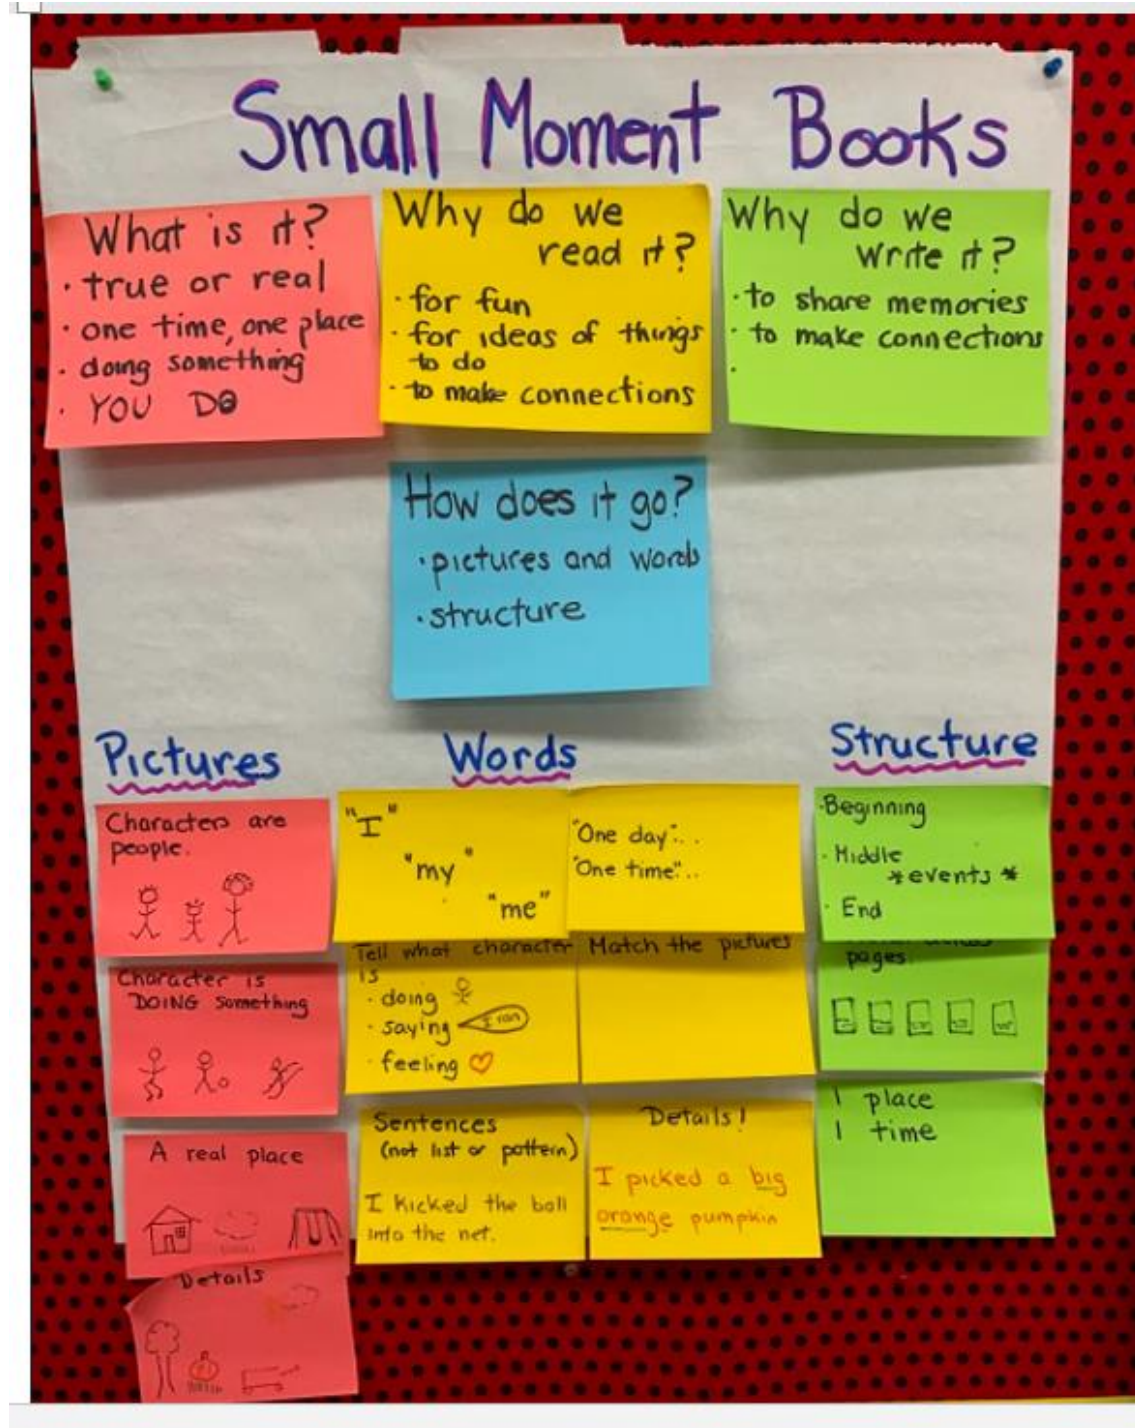 Small Moment Books
What is it?
· true or real
· one time, one place
· doing something
· YOU DO
Why do we
read it?
· for fun
· for ideas of things
to do
· to make connections
Why do we
write it?
· to share memories
· to make connections
·
How does it go?
· pictures and words
· structure
Pictures
Characters are
people.
Character is
DOING something
A real place
Details
Words
"I"
"my"
"me"
"One day"...
"One time"...
Tell what character
is
· doing
· saying
· feeling
Match the pictures
Sentences
(not list or pattern)
I kicked the ball
into the net.
Details!
I picked a big
orange pumpkin
Structure
· Beginning
· Middle
*events*
· End
pages.
1 place
1 time